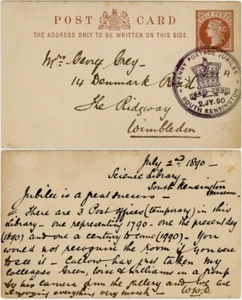 POST CARD
HALF PENNY
THE ADDRESS ONLY TO BE WRITTEN ON THIS SIDE.
PENNY POSTAGE JUBILEE
2 JY. 90
SOUTH KENSINGTON
Mrs- George Grey-
14 Denmark Road
The Ridgway
Wimbledon
July 2nd 1890-
Science Library
South Kensington
Museum
Jubilee is a great success-
There are 3 Post Offices (temporary) in this
Library - one representing 1790 - one the present day
(1890) and one a century to come (1990) - You
would not recognise the room if you were
to see it - Callow has just taken my
colleagues Green, and Williams in a group
by his camera from the gallery and we are
enjoying everything very much -